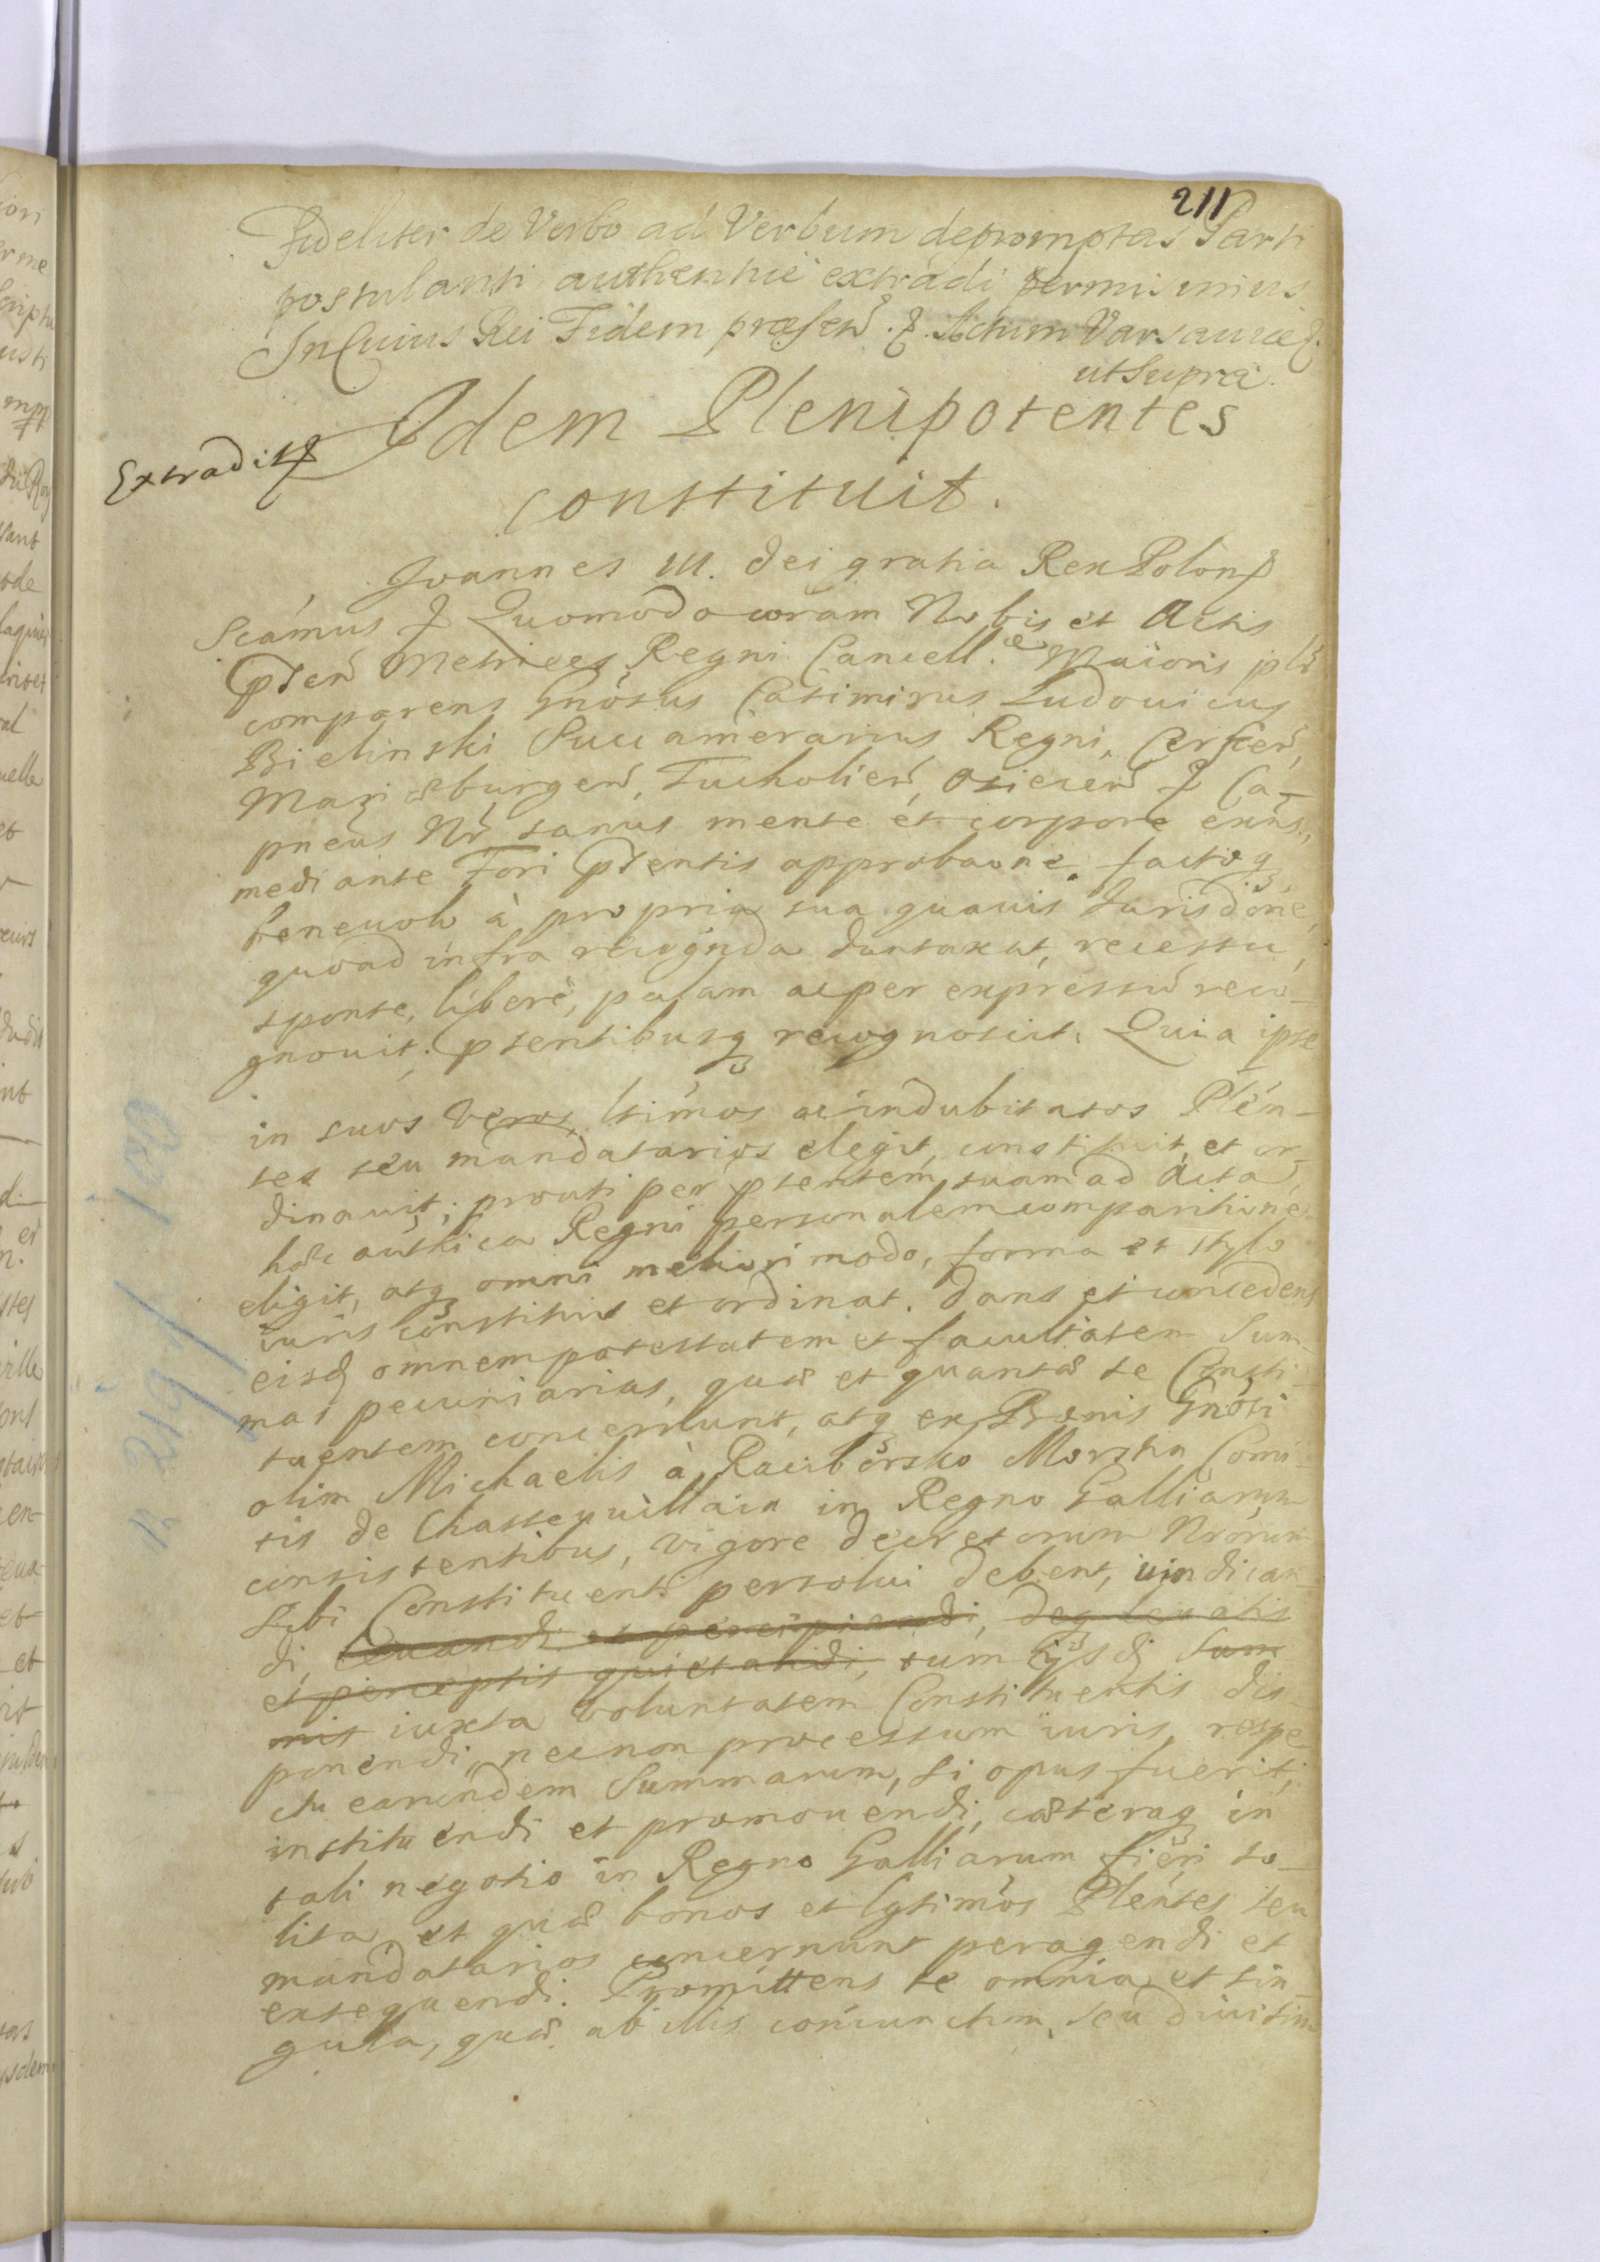 211
Fideliter de Verbo ad Verbum depromptas Parti
postulanti authenticè extradi permisimus
In Cuius Rei Fidem præsen̄. Actum Varsaviæ
ut Supra.
Idem Plenipotentes
Extradit
constituit.
Ioannes III. Dei gratia Rex Polon
Scámus Quomodo coram Nobis et Actis
Metrices Regni Cancell. Maioris
comparens Gnosus Casimirus Ludouicus
Bielinski Succamerarius Regni,
Mariæburgen̄, Tucholien̄, Osiecen̄ Ca-
pneus Nr̄ sanus mente et corpore exñs,
mediante Fori approbaone. factoq
beneuolo à propria sua quauis Iurisdone,
quoad infra recognda duntaxat, recessu,
sponte, liberè, palam ac per expressū reco-
gnouit; psentibusq recognoscit. Quia ipse
in suos veros, ltimos ac indubitatos Plén-
tes seu mandatarios elegit, constituit, et or-
dinauit; prouti per psentem suam ad Acta
hæc authtica Regni personalem comparitione
eligit, atq omni meliori modo, forma et stylo
iuris constituit et ordinat. Dans et concedens
eisd omnem potestatem et facultatem Sum-
mas pecuniarias, quæ et quantæ se Consti-
tuentem concernunt, atq ex Bonis Gnosi
olim Michaelis à Raciborsko Morstin Comi-
tis de Chasteauvillain in Regno Galliarum
consistentibus, vigore decretorum Nrorum
Sibi Constituenti persolui debent, uindican-
di, leuandi et percipiendi, deq leuatis
et perceptis quietandi, tum ijsd Sum-
mis iuxta voluntatem Constituentis dis-
ponendi, necnon processum iuris, respe-
ctu earundem Summarum, si opus fuerit,
instituendi et promouendi, cæteraq in
tali negotio in Regno Galliarum fiéri so-
lita, et quæ bonos et lgtimos Plentes seu
mandatarios concernunt peragendi et
exsequendi. Promittens se omnia et sin-
gula, quæ ab illis coniunctim, seu diuisim